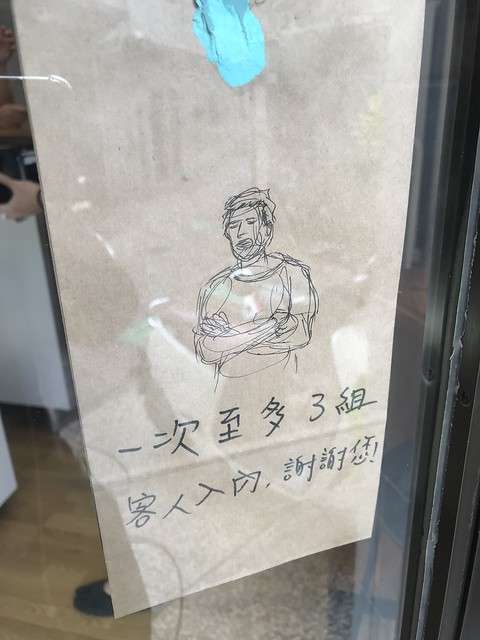 一次至多3組
客人入內，謝謝您!